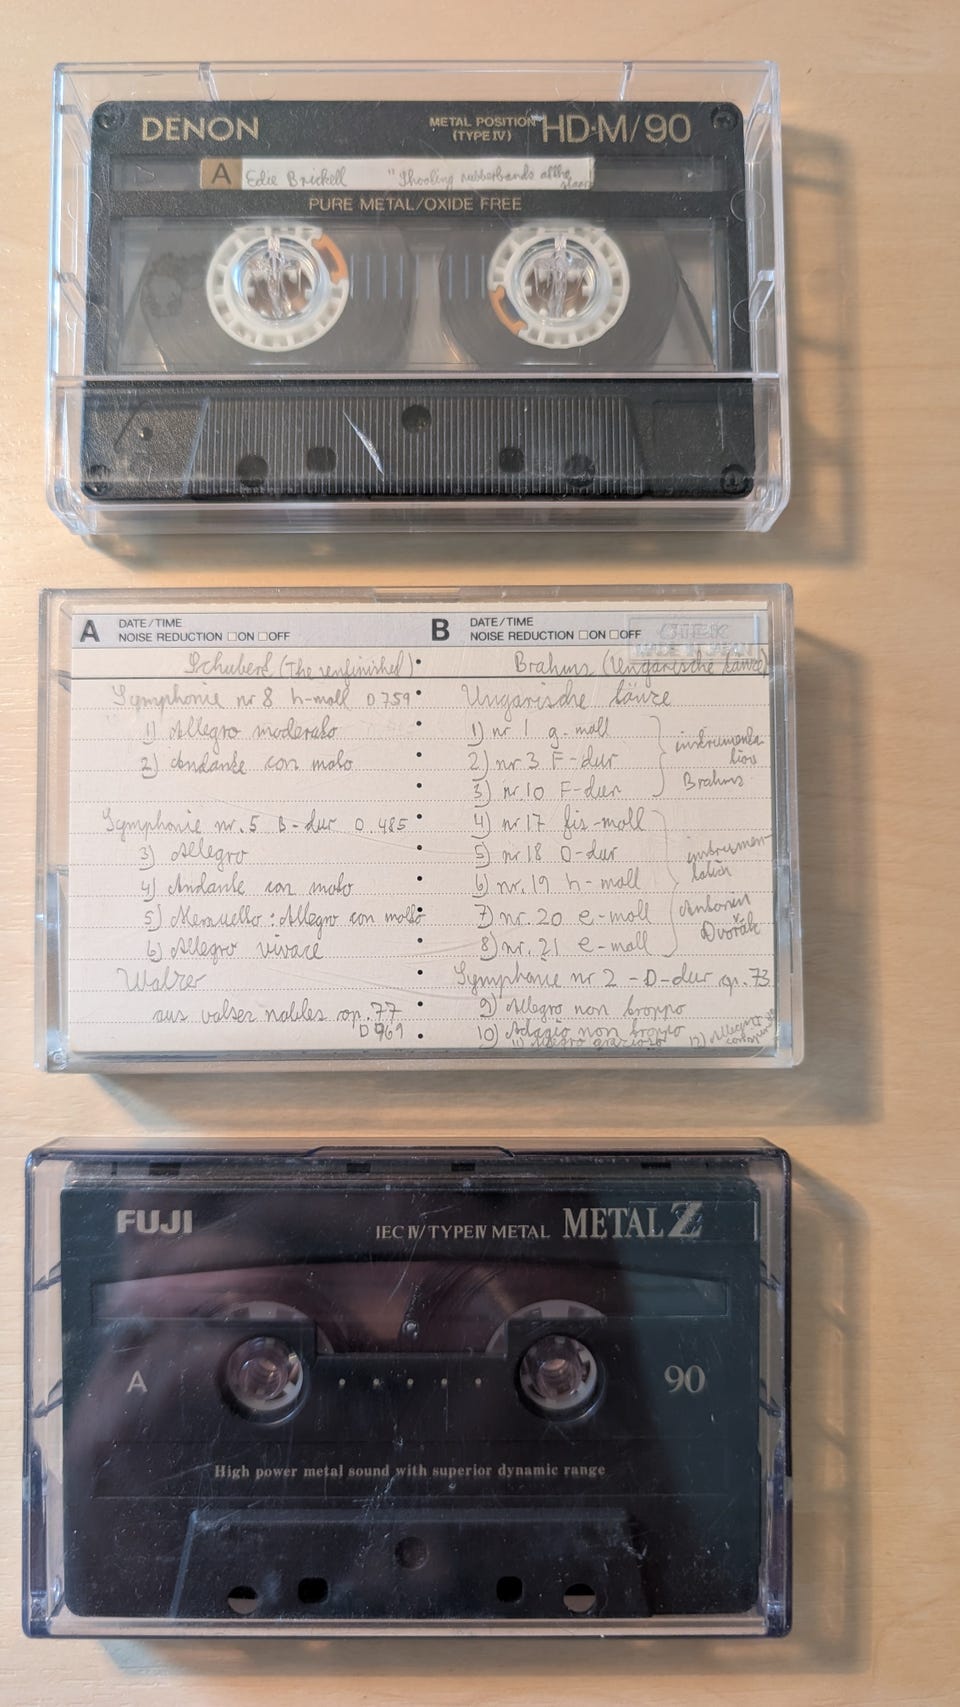 DENON
METAL POSITION (TYPE IV) HD·M/90
A Edie Brickell "Shooling rubberbands atthe
PURE METAL/OXIDE FREE
A DATE/TIME
NOISE REDUCTION □ON □OFF
B DATE/TIME
NOISE REDUCTION □ON □OFF
MADE IN JAPAN
Schubert (The unfinished)
Symphonie nr 8 h-moll D759
1) Allegro moderato
2) Andante con moto
Symphonie nr. 5 B-dur D. 485
3) Allegro
4) Andante con moto
5) Menuetto: Allegro con molto
6) Allegro vivace
Walzer
aus valses nobles op. 77
D 969
Brahms (Ungarische Tänze)
Ungarische Tänze
1) nr 1 g-moll
2) nr 3 F-dur
3) nr. 10 F-dur
instrumenta-
tion
Brahms
4) nr 17 fis-moll
5) nr 18 D-dur
6) nr. 19 h-moll
7) nr. 20 e-moll
8) nr. 21 e-moll
instrumen-
tation
Antonin
Dvořák
Symphonie nr 2 - D-dur op. 73
9) Allegro non troppo
10) Adagio non troppo
11) Allegro grazioso 12) Allegro
FUJI
IEC IV/TYPE IV METAL METAL Z
A 90
High power metal sound with superior dynamic range